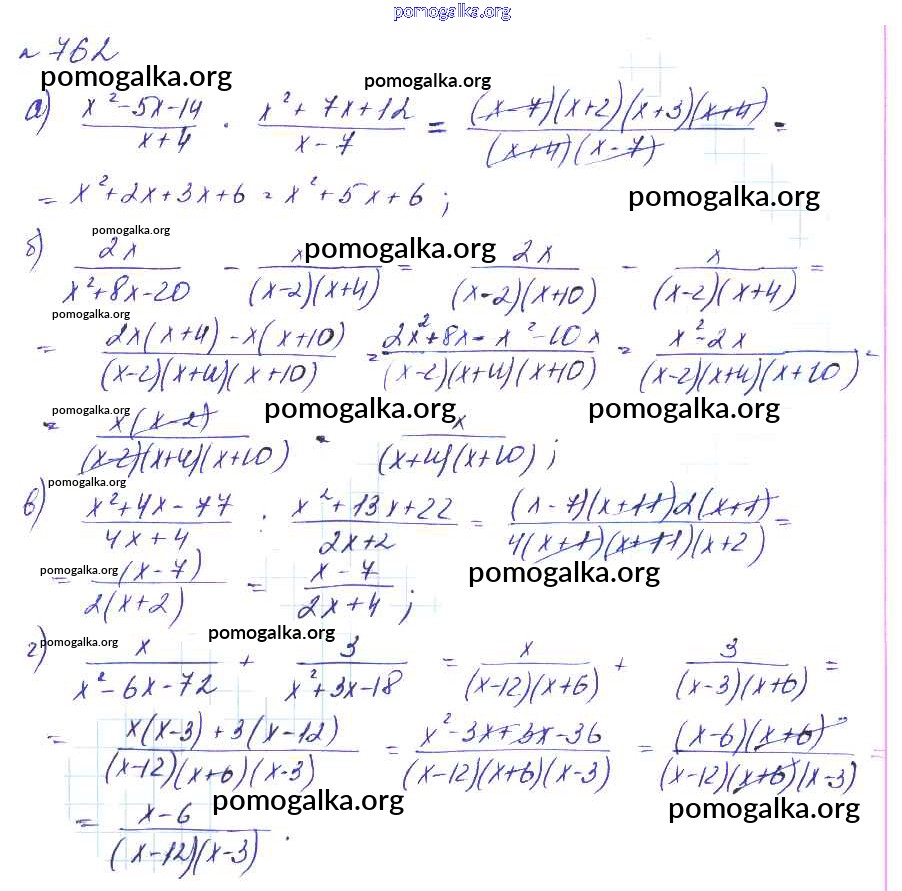 pomogalka.org
№ 762
pomogalka.org pomogalka.org
а) (x²-5x-14)/(x+4) · (x²+7x+12)/(x-7) = ((x-7)(x+2)(x+3)(x+4))/((x+4)(x-7)) =
= x²+2x+3x+6 = x²+5x+6 ; pomogalka.org
pomogalka.org pomogalka.org
б) 2x/(x²+8x-20) - x/((x-2)(x+4)) = 2x/((x-2)(x+10)) - x/((x-2)(x+4)) =
pomogalka.org
= (2x(x+4)-x(x+10))/((x-2)(x+4)(x+10)) = (2x²+8x-x²-10x)/((x-2)(x+4)(x+10)) = (x²-2x)/((x-2)(x+4)(x+10)) =
pomogalka.org pomogalka.org pomogalka.org
= (x(x-2))/((x-2)(x+4)(x+10)) = x/((x+4)(x+10)) ;
pomogalka.org
в) (x²+4x-77)/(4x+4) : (x²+13x+22)/(2x+2) = ((x-7)(x+11)2(x+1))/(4(x+1)(x+11)(x+2)) =
pomogalka.org pomogalka.org
= (x-7)/(2(x+2)) = (x-7)/(2x+4) ;
pomogalka.org pomogalka.org
г) x/(x²-6x-72) + 3/(x²+3x-18) = x/((x-12)(x+6)) + 3/((x-3)(x+6)) =
= (x(x-3)+3(x-12))/((x-12)(x+6)(x-3)) = (x²-3x+3x-36)/((x-12)(x+6)(x-3)) = ((x-6)(x+6))/((x-12)(x+6)(x-3)) =
pomogalka.org pomogalka.org
= (x-6)/((x-12)(x-3)) .